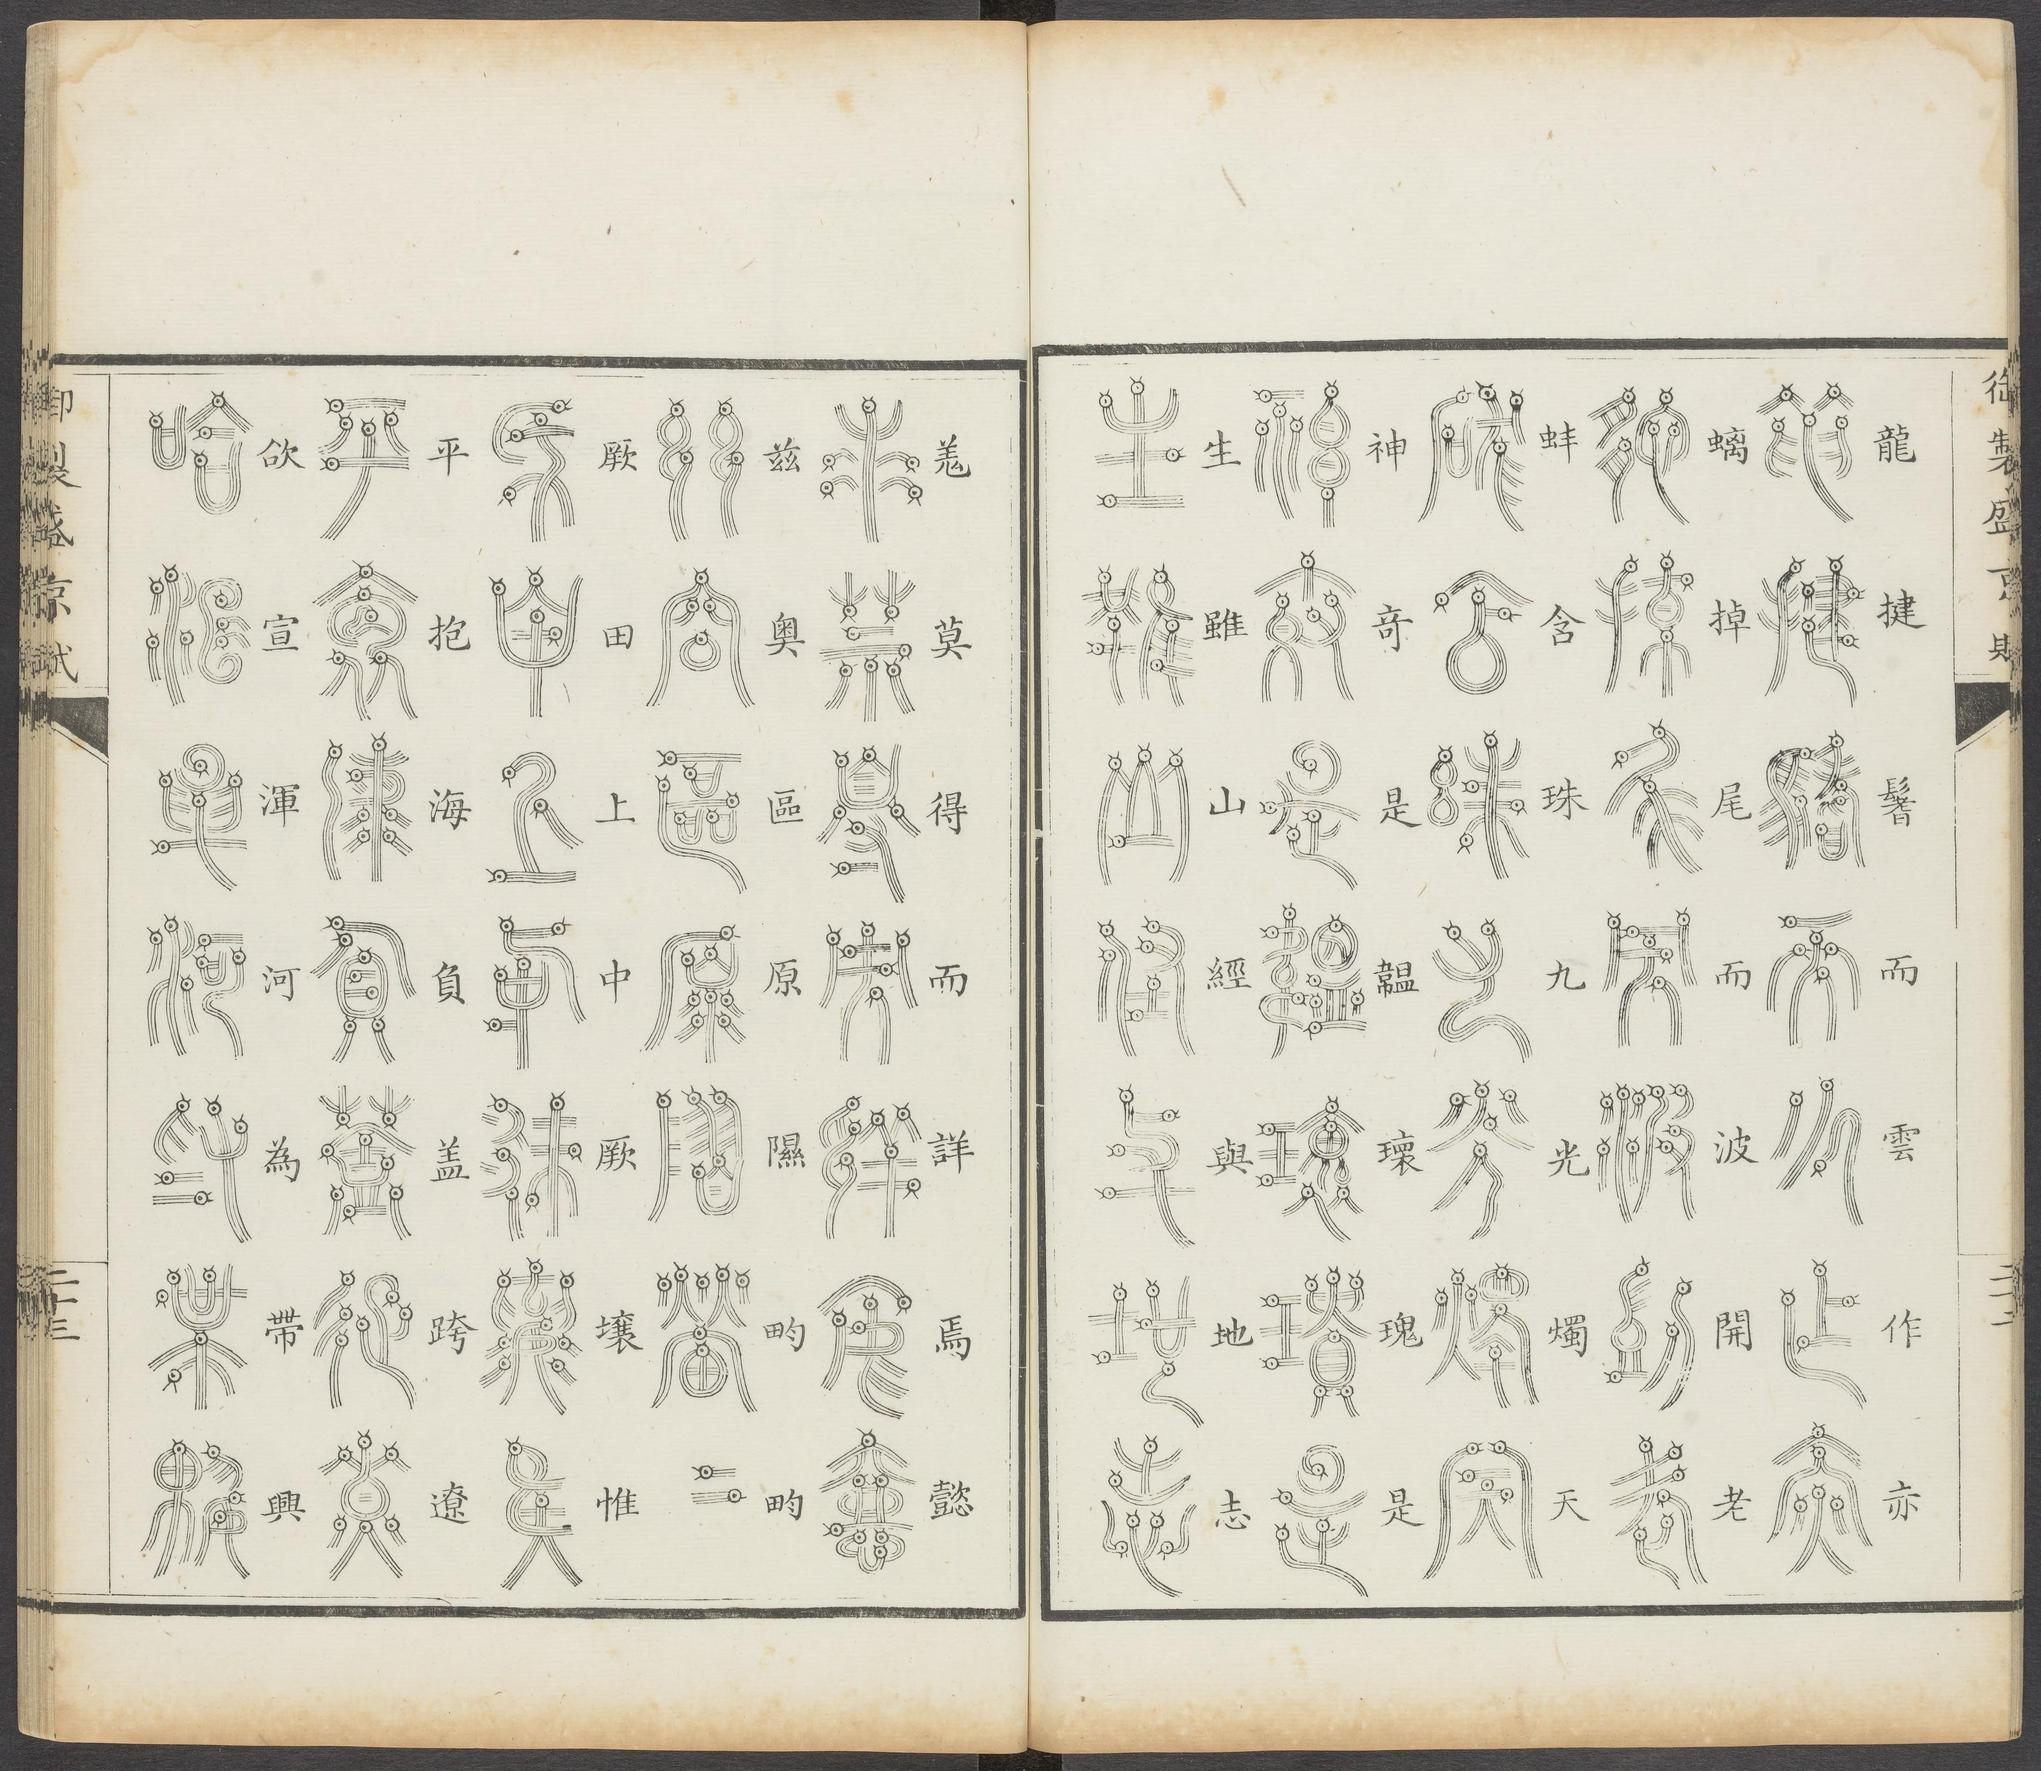 御製盛京賦
龍揵鬐而雲作亦
螭掉尾而波開老
蚌含珠九光燭天
神奇是韞瓌瑰是
生雖山經與地志
羌莫得而詳焉懿
茲奧區原隰畇畇
厥田上中厥壤惟
平抱海負盖跨遼
欱宣渾河為帶興
御製盛京賦
二十三